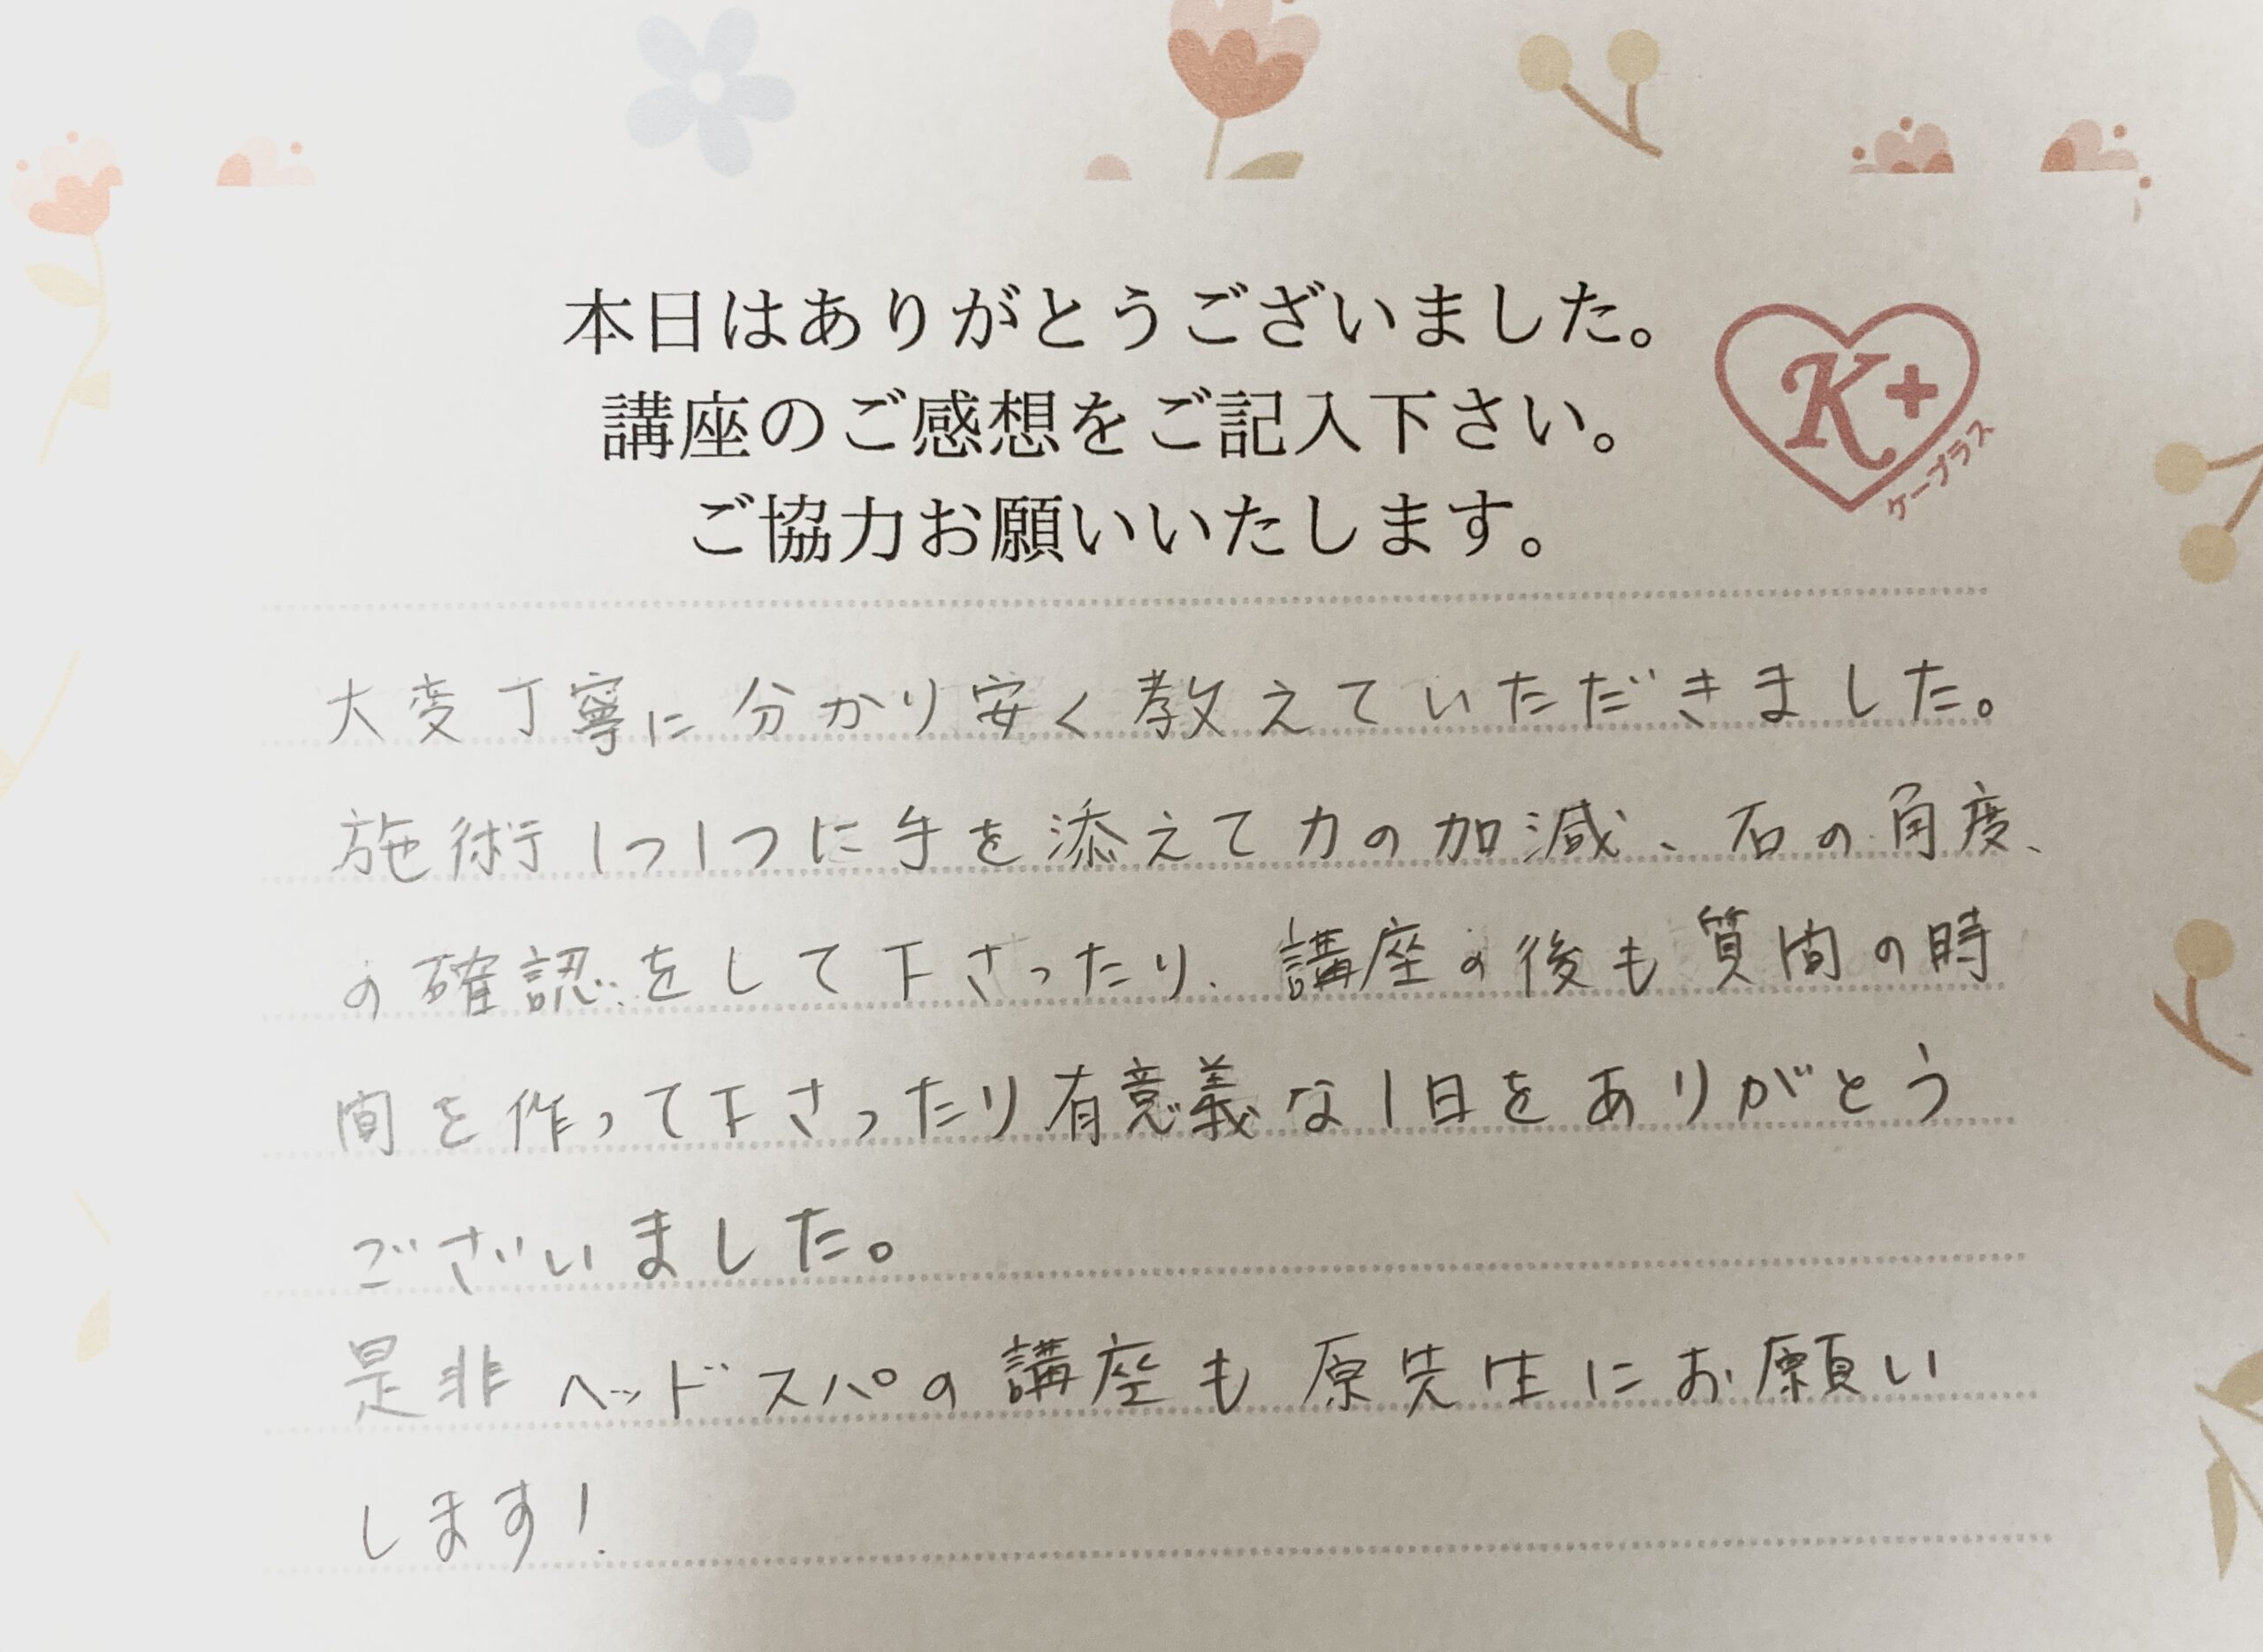 本日はありがとうございました。
講座のご感想をご記入下さい。
ご協力お願いいたします。
K+
ケープラス
大変丁寧に分かり安く教えていただきました。
施術1つ1つに手を添えて力の加減、石の角度、
の確認をして下さったり、講座の後も質問の時
間を作って下さったり有意義な1日をありがとう
ございました。
是非ヘッドスパの講座も原先生にお願い
します!